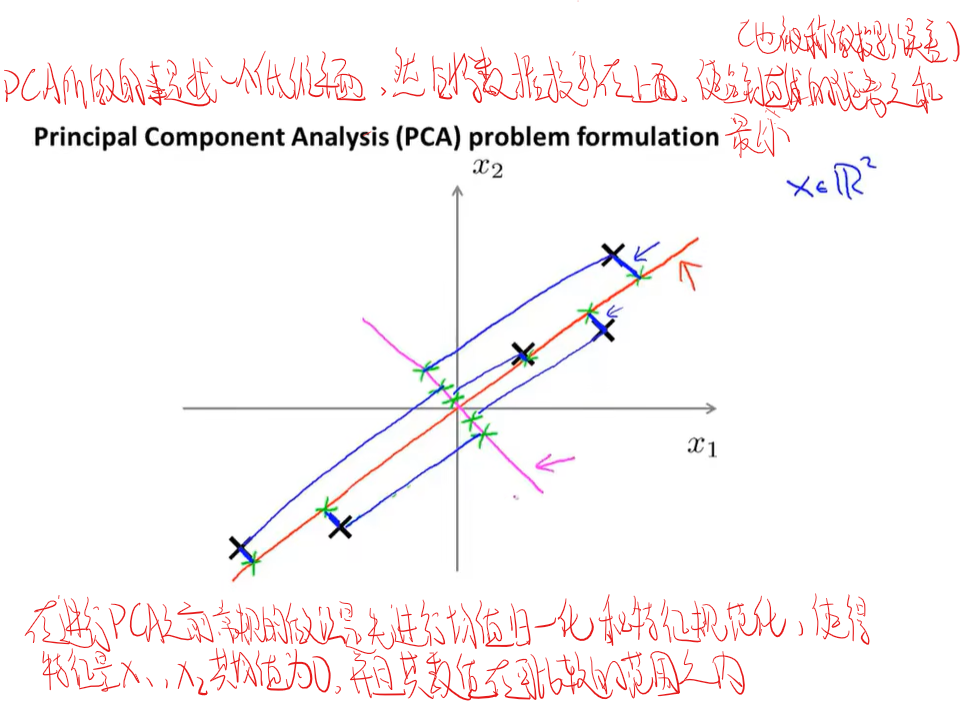 (也被称做投影误差)
PCA所做的事是找一个低维平面,然后将数据投影在上面,使点到直线的距离之和
最小
Principal Component Analysis (PCA) problem formulation
x₂
x∈ℝ²
x₁
在进行PCA之前常规的做法是先进行均值归一化和特征规范化,使得
特征量x₁,x₂其均值为0,并且其数值在可比较的范围之内